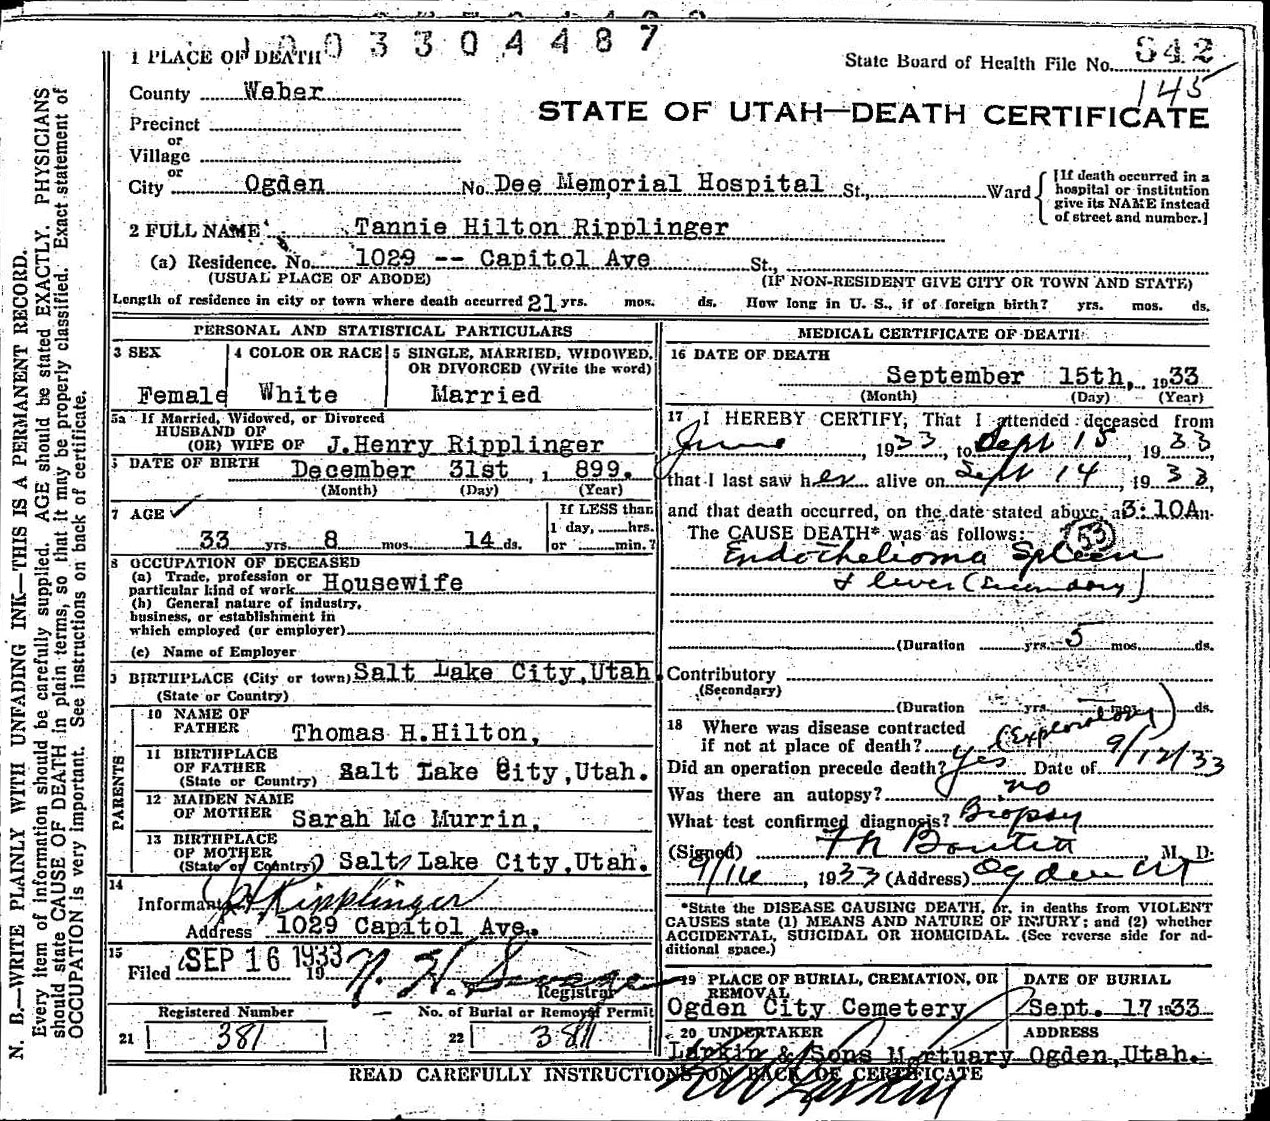 1003304487
1 PLACE OF DEATH
State Board of Health File No. 842
145
County Weber
STATE OF UTAH—DEATH CERTIFICATE
Precinct
or
Village
or
City Ogden No. Dee Memorial Hospital St., Ward
[If death occurred in a hospital or institution give its NAME instead of street and number.]
2 FULL NAME Tannie Hilton Ripplinger
(a) Residence. No. 1029 -- Capitol Ave St.,
(USUAL PLACE OF ABODE) (IF NON-RESIDENT GIVE CITY OR TOWN AND STATE)
Length of residence in city or town where death occurred 21 yrs. mos. ds. How long in U. S., if of foreign birth? yrs. mos. ds.
PERSONAL AND STATISTICAL PARTICULARS
3 SEX
Female
4 COLOR OR RACE
White
5 SINGLE, MARRIED, WIDOWED, OR DIVORCED (Write the word)
Married
5a If Married, Widowed, or Divorced
HUSBAND OF
(OR) WIFE OF J.Henry Ripplinger
DATE OF BIRTH December 31st , 1 899.
(Month) (Day) (Year)
7 AGE ✓
33 yrs. 8 mos. 14 ds.
If LESS than
1 day, hrs.
or min.?
8 OCCUPATION OF DECEASED
(a) Trade, profession or
particular kind of work Housewife
(b) General nature of industry,
business, or establishment in
which employed (or employer)
(c) Name of Employer
BIRTHPLACE (City or town) Salt Lake City,Utah.
(State or Country)
PARENTS
10 NAME OF
FATHER Thomas H.Hilton,
11 BIRTHPLACE
OF FATHER
(State or Country) Salt Lake City,Utah.
12 MAIDEN NAME
OF MOTHER Sarah Mc Murrin,
13 BIRTHPLACE
OF MOTHER
(State or Country) Salt Lake City,Utah.
14
Informant J H Ripplinger
Address 1029 Capitol Ave.
15
Filed SEP 16 1933 19
Registrar
Registered Number No. of Burial or Removal Permit
21 381 22 381
MEDICAL CERTIFICATE OF DEATH
16 DATE OF DEATH
September 15th, 1933
(Month) (Day) (Year)
17 I HEREBY CERTIFY, That I attended deceased from
June , 1933, to Sept 15 , 1933
that I last saw her alive on Sept 14 , 1933,
and that death occurred, on the date stated above, at 3:10A m.
The CAUSE DEATH* was as follows: 53
Endothelioma Spleen
& liver (Secondary)
(Duration yrs. 5 mos. ds.
Contributory
(Secondary)
(Duration yrs. mos. ds.
18 Where was disease contracted
if not at place of death? (Exploratory)
Did an operation precede death? yes Date of 9/12/33
Was there an autopsy? no
What test confirmed diagnosis? Biopsy
(Signed) M. D.
9/16 , 1933 (Address) Ogden Ut
*State the DISEASE CAUSING DEATH, or, in deaths from VIOLENT
CAUSES state (1) MEANS AND NATURE OF INJURY; and (2) whether
ACCIDENTAL, SUICIDAL OR HOMICIDAL. (See reverse side for ad-
ditional space.)
19 PLACE OF BURIAL, CREMATION, OR REMOVAL
Ogden City Cemetery
DATE OF BURIAL
Sept. 17 1933
20 UNDERTAKER
Larkin & Sons Mortuary
ADDRESS
Ogden,Utah.
READ CAREFULLY INSTRUCTIONS ON BACK OF CERTIFICATE
N. B.—WRITE PLAINLY WITH UNFADING INK—THIS IS A PERMANENT RECORD.
Every item of information should be carefully supplied. AGE should be stated EXACTLY. PHYSICIANS
should state CAUSE OF DEATH in plain terms, so that it may be properly classified. Exact statement of
OCCUPATION is very important. See instructions on back of certificate.